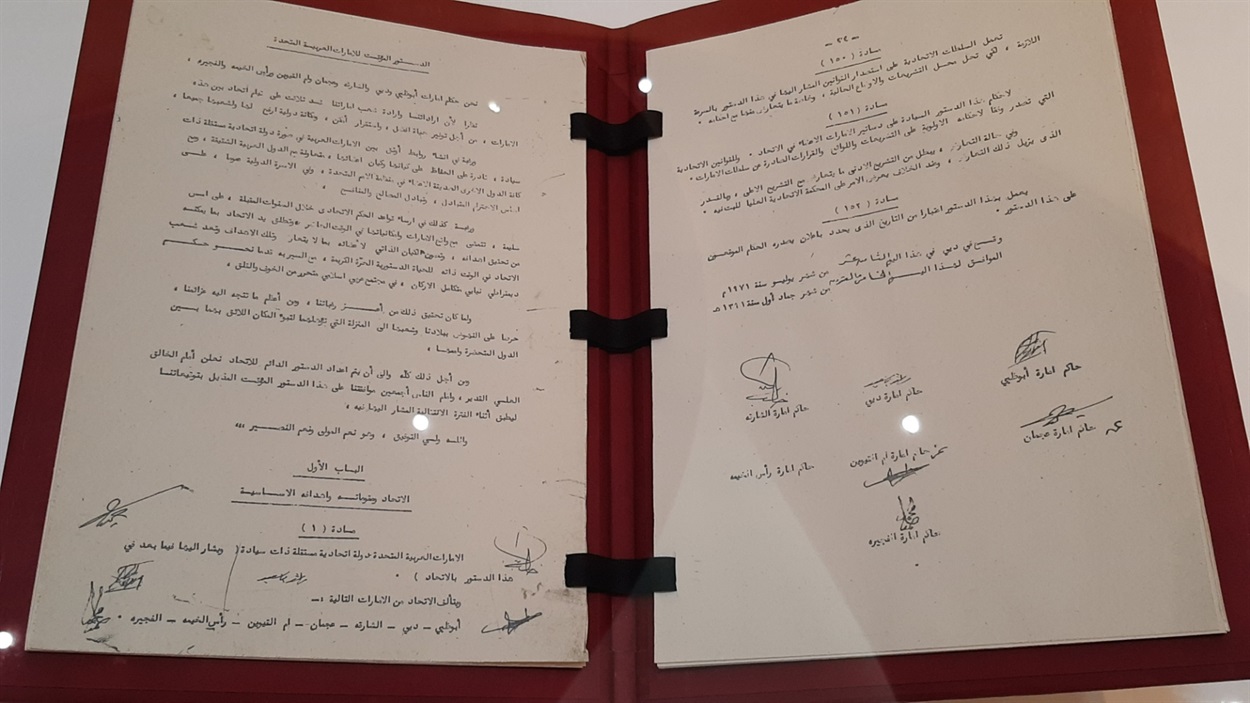 الدستور المؤقت للامارات العربية المتحدة
نحن حكام امارات ابوظبي ودبي والشارقة وعجمان وام القيوين ورأس الخيمه والفجيره ،
نظرا لأن ارادتنا وارادة شعب اماراتنا قد تلاقت على قيام اتحاد بين هذه
الامارات ، من أجل توفير حياة أفضل ، واستقرار أمكن ، ومكانة دولية ارفع لها ولشعبها جميعا ،
ورغبة في انشاء روابط أوثق بين الامارات العربية في صورة دولة اتحادية مستقلة ذات
سيادة ، قادرة على الحفاظ على كيانها وكيان اعضائها ، متعاونة مع الدول العربية الشقيقة ، ومع
كافة الدول الاخرى الصديقة الاعضاء في منظمة الامم المتحدة ، وفي الاسرة الدولية عموما ، على
اساس الاحترام المتبادل ، وتبادل المصالح والمنافع ،
ورغبة كذلك في ارساء قواعد الحكم الاتحادى خلال السنوات المقبلة ، على اسس
سليمة ، تتمشى مع واقع الامارات وامكانياتها في الوقت الحاضر ، وتطلق يد الاتحاد بما يمكنه
من تحقيق اهدافه ، وتصون الكيان الذاتي لأعضائه بما لا يتعارض وتلك الاهداف وتعد شعب
الاتحاد في الوقت ذاته للحياة الدستورية الحرة الكريمة ، مع السير به قدما نحو حكم
ديمقراطي نيابي متكامل الاركان ، في مجتمع عربي اسلامي متحرر من الخوف والقلق ،
ولما كان تحقيق ذلك من أعز رغباتنا ، ومن أعظم ما تتجه اليه عزائمنا ،
حرصا على النهوض ببلادنا وشعبها الى المنزلة التي تؤهلهما لتبوء المكان اللائق بهما بين
الدول المتحضرة وأممها ،
ومن أجل ذلك كله والى أن يتم اعداد الدستور الدائم للاتحاد نعلن أمام الخالق
العلي القدير ، وأمام الناس أجمعين موافقتنا على هذا الدستور المؤقت المذيل بتوقيعاتنا
ليطبق أثناء الفترة الانتقالية المشار اليها فيه ،
والله ولي التوفيق ، وهو نعم المولى ونعم النصير ،،،
الباب الأول
الاتحاد ومقوماته واهدافه الاساسية
مادة ( ١ )
الامارات العربية المتحدة دولة اتحادية مستقلة ذات سيادة ( ويشار اليها فيما بعد في
هذا الدستور بالاتحاد ) .
ويتألف الاتحاد من الامارات التالية :ـ
أبوظبي ـ دبي ـ الشارقه ـ عجمان ـ ام القيوين ـ رأس الخيمه ـ الفجيره .
مادة ( ١٥٠ )
تعمل السلطات الاتحادية على استصدار القوانين المشار اليها في هذا الدستور بالسرعة
اللازمة ، لكي تحل محل التشريعات والاوضاع الحالية ، وخاصة ما يتعارض منها مع احكامه .
مادة ( ١٥١ )
لاحكام هذا الدستور السيادة على دساتير الامارات الاعضاء في الاتحاد . وللقوانين الاتحادية
التي تصدر وفقا لاحكامه الاولوية على التشريعات واللوائح والقرارات الصادرة من سلطات الامارات .
وفي حالة التعارض ، يبطل من التشريع الادنى ما يتعارض مع التشريع الاعلى ، وبالقدر
الذى يزيل ذلك التعارض . وعند الخلاف يعرض الامر على المحكمة الاتحادية العليا للبت فيه .
مادة ( ١٥٢ )
يعمل بهذا الدستور اعتبارا من التاريخ الذى يحدد باعلان يصدره الحكام الموقعين
على هذا الدستور .
وقع في دبي في هذا اليوم الثامن عشر من شهر يوليو سنة ١٩٧١م
الموافق لهذا اليوم الخامس والعشرين من شهر جماد أول سنة ١٣٩١هـ
حاكم امارة أبوظبي
حاكم امارة دبي
حاكم امارة الشارقه
حاكم امارة عجمان
حاكم امارة ام القيوين
حاكم امارة رأس الخيمه
حاكم امارة الفجيره